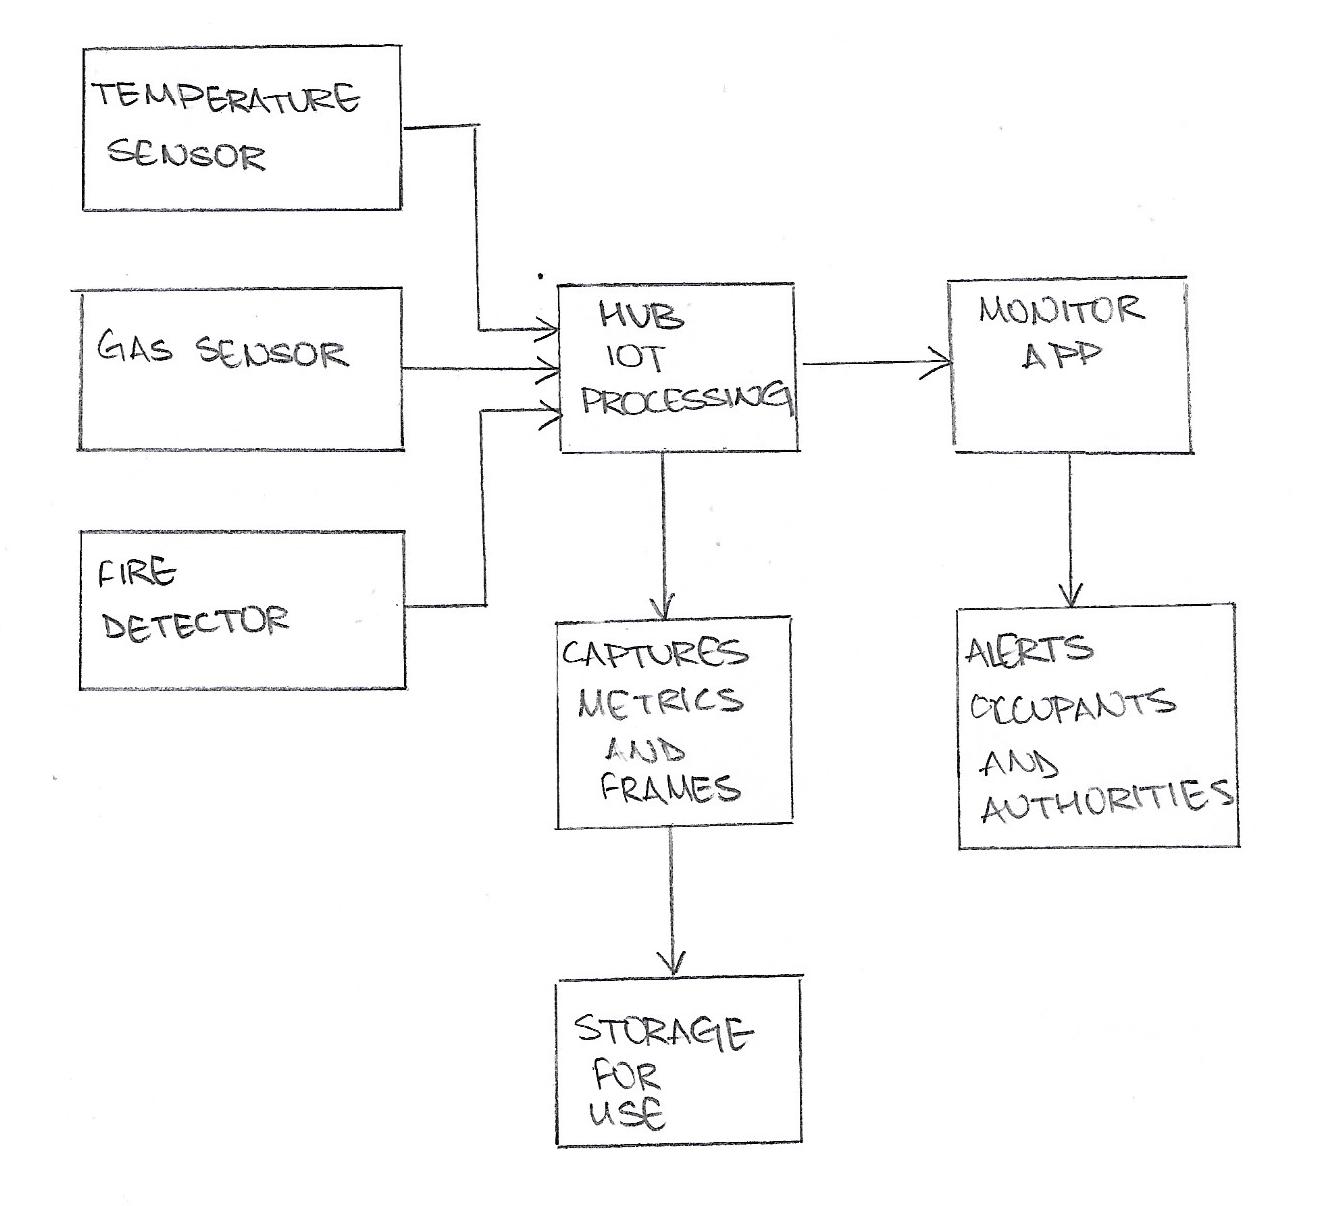 TEMPERATURE
SENSOR
GAS SENSOR
FIRE
DETECTOR
HUB
IOT
PROCESSING
MONITOR
APP
CAPTURES
METRICS
AND
FRAMES
ALERTS
OCCUPANTS
AND
AUTHORITIES
STORAGE
FOR
USE